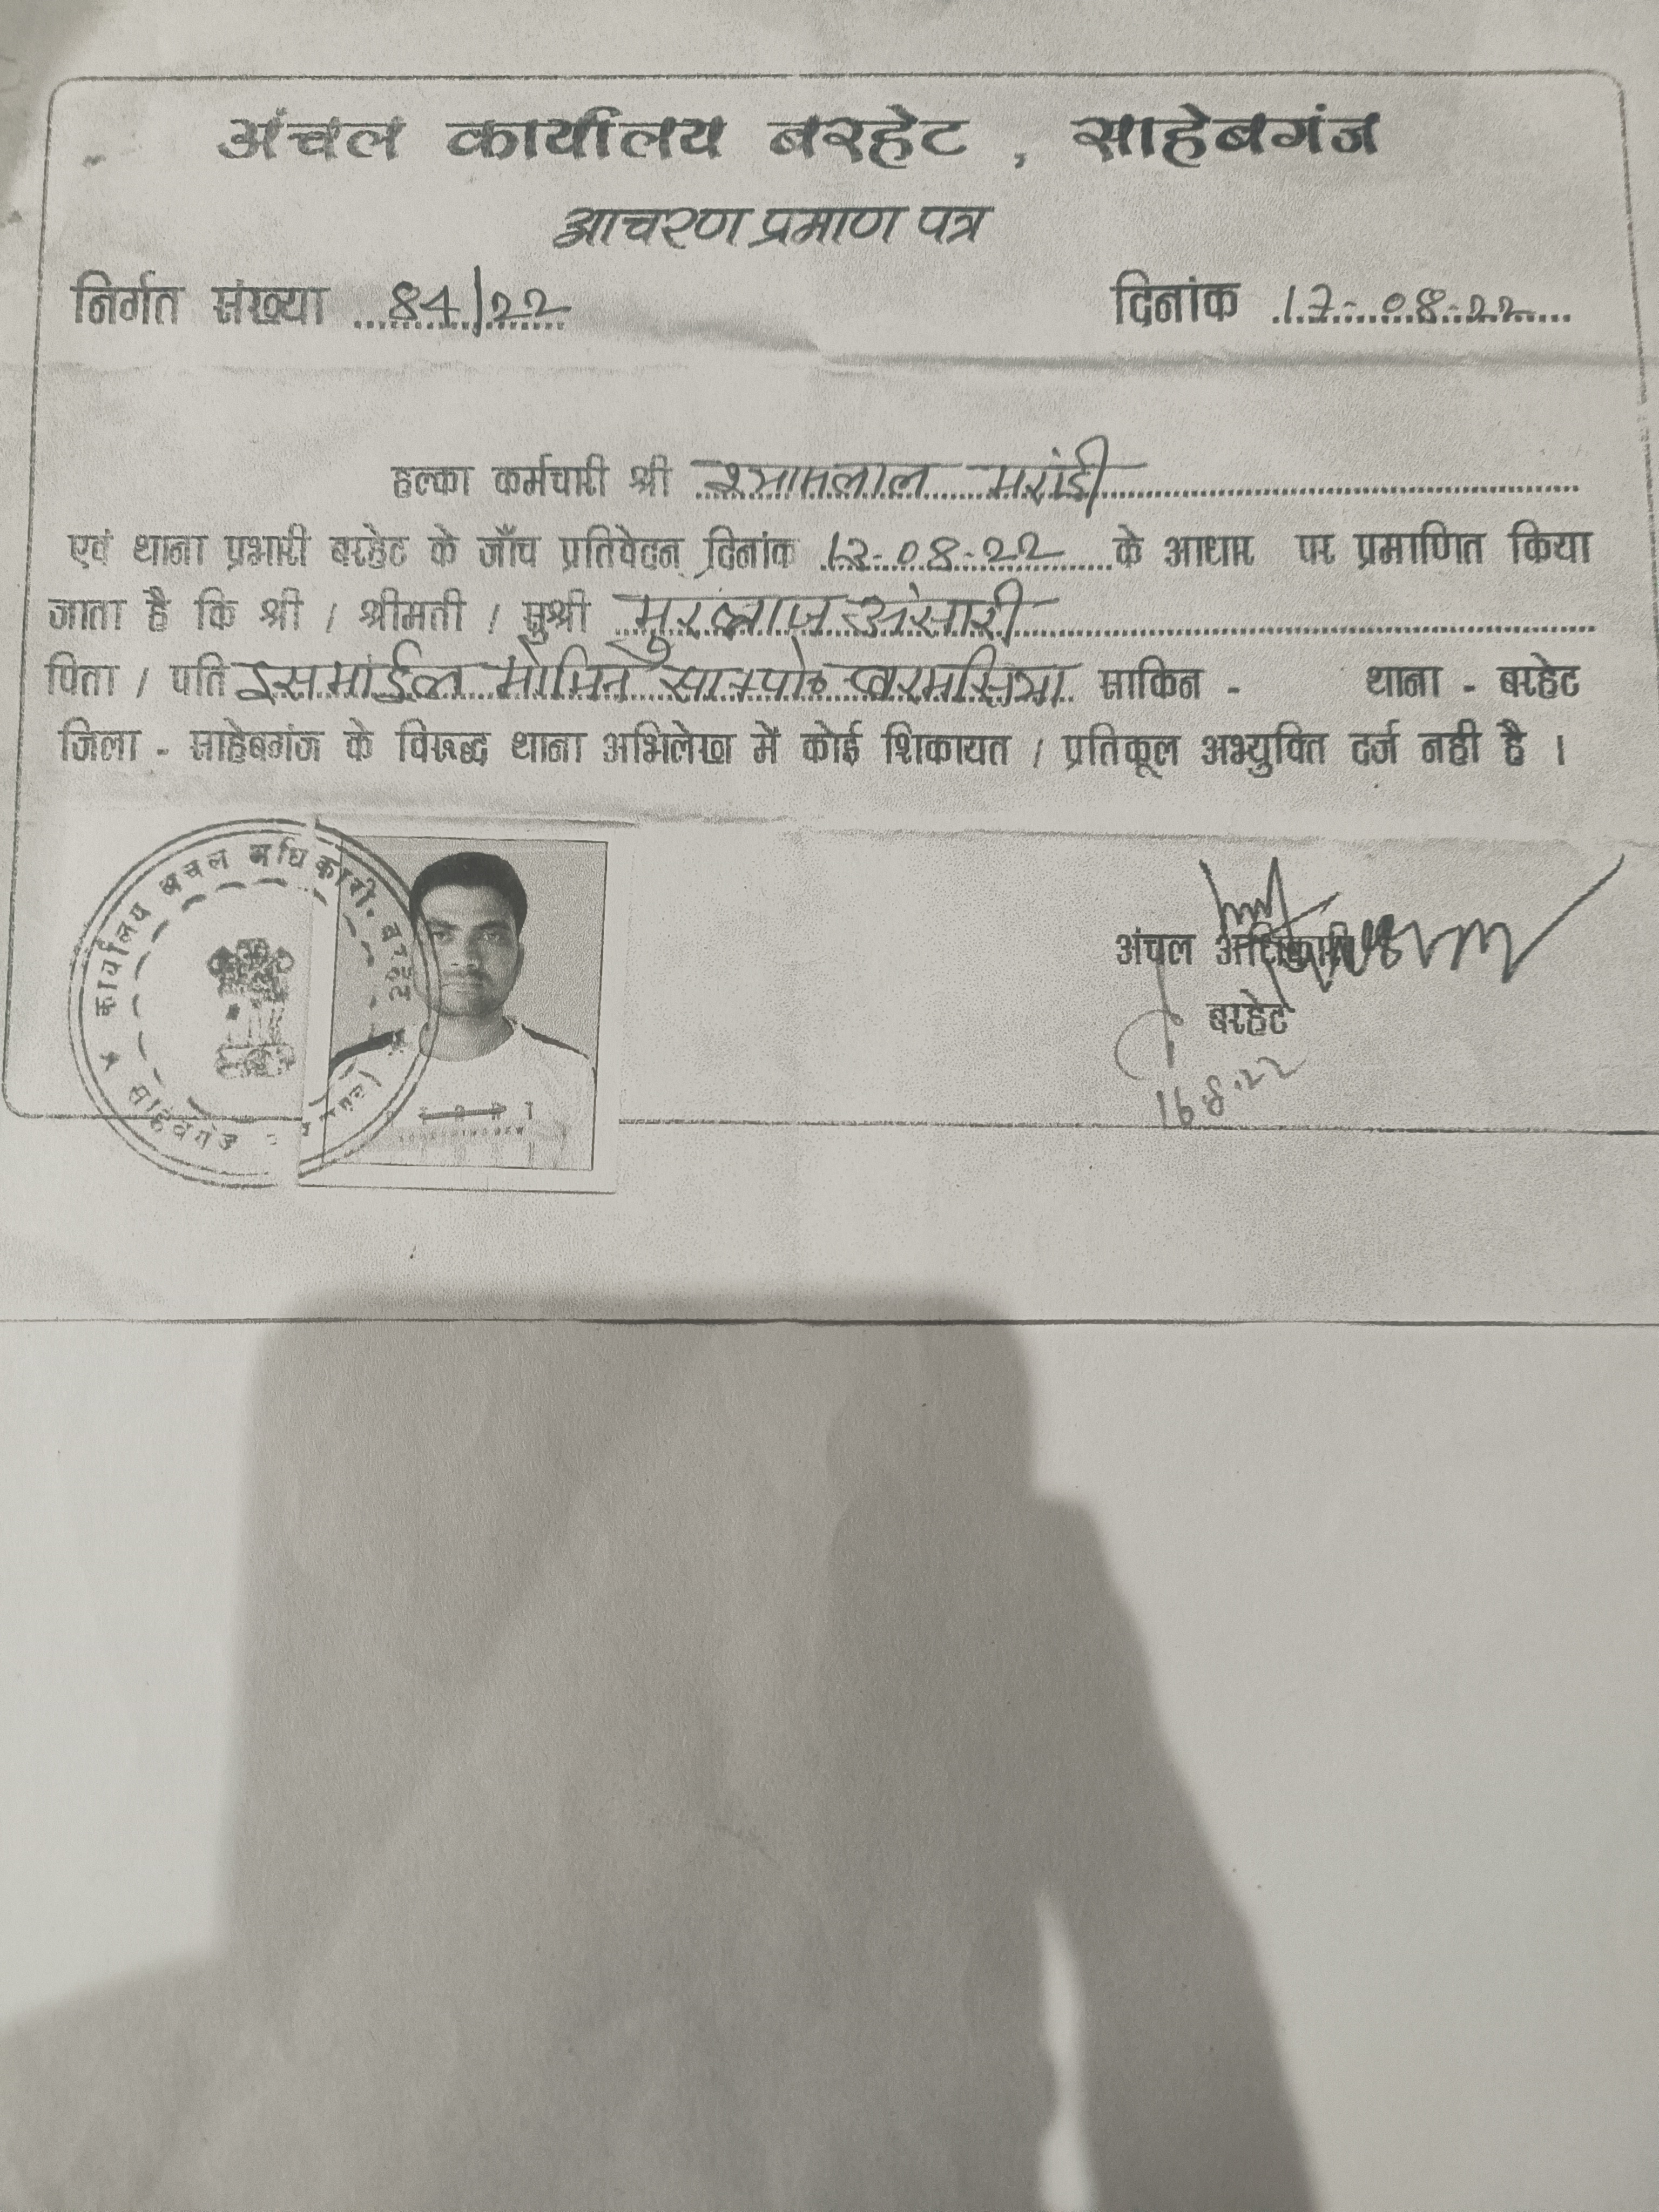 अंचल कार्यालय बरहेट , साहेबगंज
आचरण प्रमाण पत्र
निर्गत संख्या 84/22 दिनांक 17-08-22
हल्का कर्मचारी श्री श्यामलाल मरांडी
एवं थाना प्रभारी बरहेट के जाँच प्रतिवेदन दिनांक 12-08-22 के आधार पर प्रमाणित किया
जाता है कि श्री / श्रीमती / सुश्री अंसारी
पिता / पति इसमाईल मोमिन साकिन - थाना - बरहेट
जिला - साहेबगंज के विरूद्ध थाना अभिलेख में कोई शिकायत / प्रतिकूल अभ्युक्ति दर्ज नही है ।
कार्यालय अंचल अधिकारी, बरहेट
साहेबगंज
अंचल अधिकारी
बरहेट
16.8.22